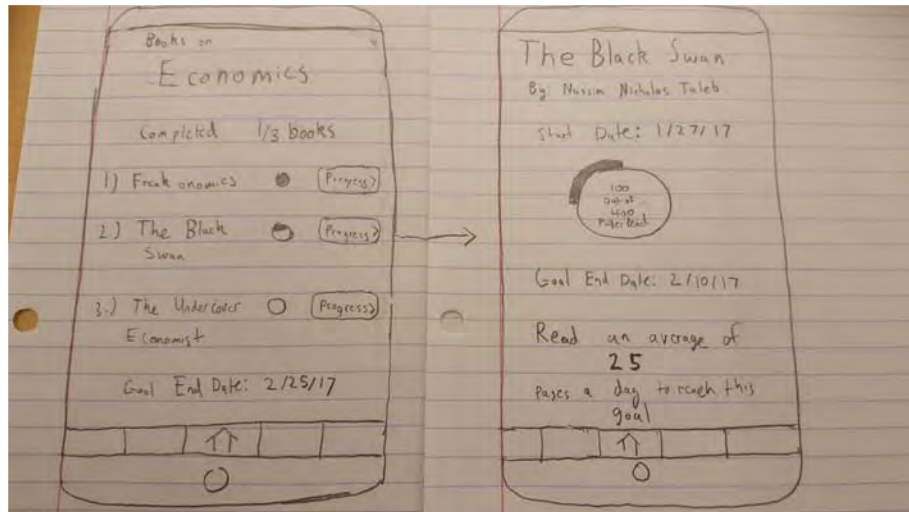 Books on
Economics
Completed 1/3 books
1) Freakonomics Progress>
2) The Black Progress>
Swan
3.) The Undercover Progress>
Economist
Goal End Date: 2/25/17
The Black Swan
By: Nassim Nicholas Taleb
Start Date: 1/27/17
100
Out of
400
Pages Read
Goal End Date: 2/10/17
Read an average of
25
Pages a day to reach this
goal